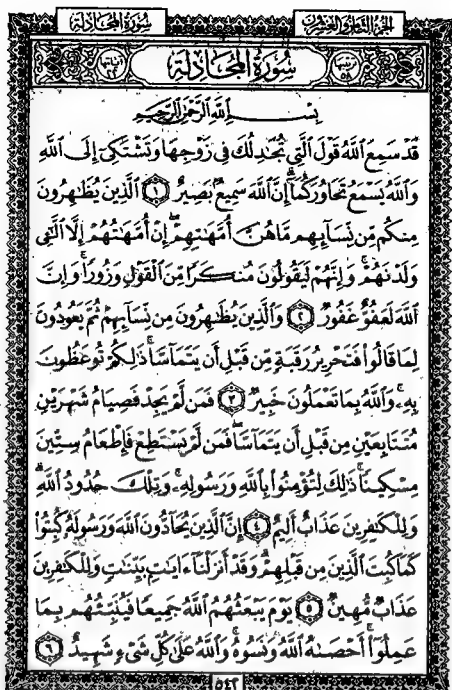 سُورَةُ المُجَادلَة الجُزْءُ الثَّامِنُ وَالعِشْرُونَ
آياتها ٢٢ سُورَةُ المُجَادلَةِ ترتيبها ٥٨
بِسْمِ اللَّهِ الرَّحْمَٰنِ الرَّحِيمِ
قَدْ سَمِعَ اللَّهُ قَوْلَ الَّتِي تُجَٰدِلُكَ فِي زَوْجِهَا وَتَشْتَكِيٓ إِلَى اللَّهِ
وَاللَّهُ يَسْمَعُ تَحَاوُرَكُمَآ إِنَّ اللَّهَ سَمِيعٌۢ بَصِيرٌ ١ الَّذِينَ يُظَٰهِرُونَ
مِنكُم مِّن نِّسَآئِهِم مَّا هُنَّ أُمَّهَٰتِهِمْ إِنْ أُمَّهَٰتُهُمْ إِلَّا الَّٰٓـِٔي
وَلَدْنَهُمْ وَإِنَّهُمْ لَيَقُولُونَ مُنكَرًا مِّنَ الْقَوْلِ وَزُورًا وَإِنَّ
اللَّهَ لَعَفُوٌّ غَفُورٌ ٢ وَالَّذِينَ يُظَٰهِرُونَ مِن نِّسَآئِهِمْ ثُمَّ يَعُودُونَ
لِمَا قَالُوا فَتَحْرِيرُ رَقَبَةٍ مِّن قَبْلِ أَن يَتَمَآسَّا ذَٰلِكُمْ تُوعَظُونَ
بِهِۦ وَاللَّهُ بِمَا تَعْمَلُونَ خَبِيرٌ ٣ فَمَن لَّمْ يَجِدْ فَصِيَامُ شَهْرَيْنِ
مُتَتَابِعَيْنِ مِن قَبْلِ أَن يَتَمَآسَّا فَمَن لَّمْ يَسْتَطِعْ فَإِطْعَامُ سِتِّينَ
مِسْكِينًا ذَٰلِكَ لِتُؤْمِنُوا بِاللَّهِ وَرَسُولِهِۦ وَتِلْكَ حُدُودُ اللَّهِ
وَلِلْكَٰفِرِينَ عَذَابٌ أَلِيمٌ ٤ إِنَّ الَّذِينَ يُحَآدُّونَ اللَّهَ وَرَسُولَهُۥ كُبِتُوا
كَمَا كُبِتَ الَّذِينَ مِن قَبْلِهِمْ وَقَدْ أَنزَلْنَآ ءَايَٰتٍۭ بَيِّنَٰتٍ وَلِلْكَٰفِرِينَ
عَذَابٌ مُّهِينٌ ٥ يَوْمَ يَبْعَثُهُمُ اللَّهُ جَمِيعًا فَيُنَبِّئُهُم بِمَا
عَمِلُوٓا أَحْصَىٰهُ اللَّهُ وَنَسُوهُ وَاللَّهُ عَلَىٰ كُلِّ شَيْءٍ شَهِيدٌ ٦
٥٤٢